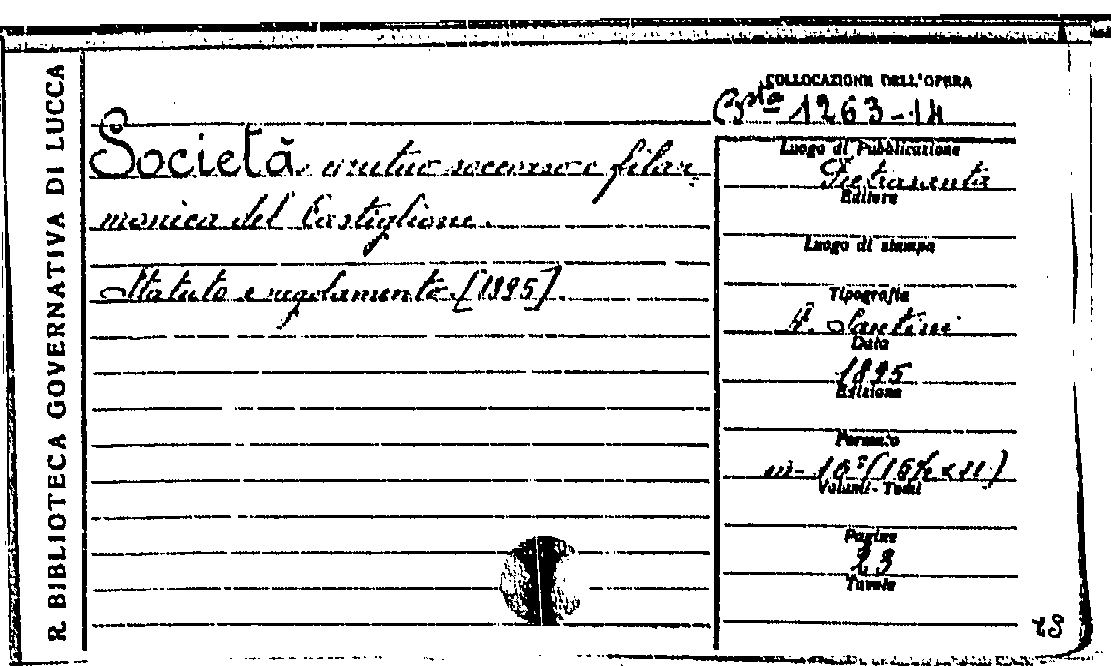 R. BIBLIOTECA GOVERNATIVA DI LUCCA
COLLOCAZIONE DELL'OPERA
Bsta 1263-14
Società, mutuo soccorso e filar-
monica del Castiglione.
Statuto e regolamento. [1895].
Luogo di Pubblicazione
Pietrasanta
Editore
Luogo di stampa
Tipografia
Santini
Data
1895
Edizione
Formato
in-16° (15½ x 11)
Volumi - Tomi
Pagine
23
Tavole